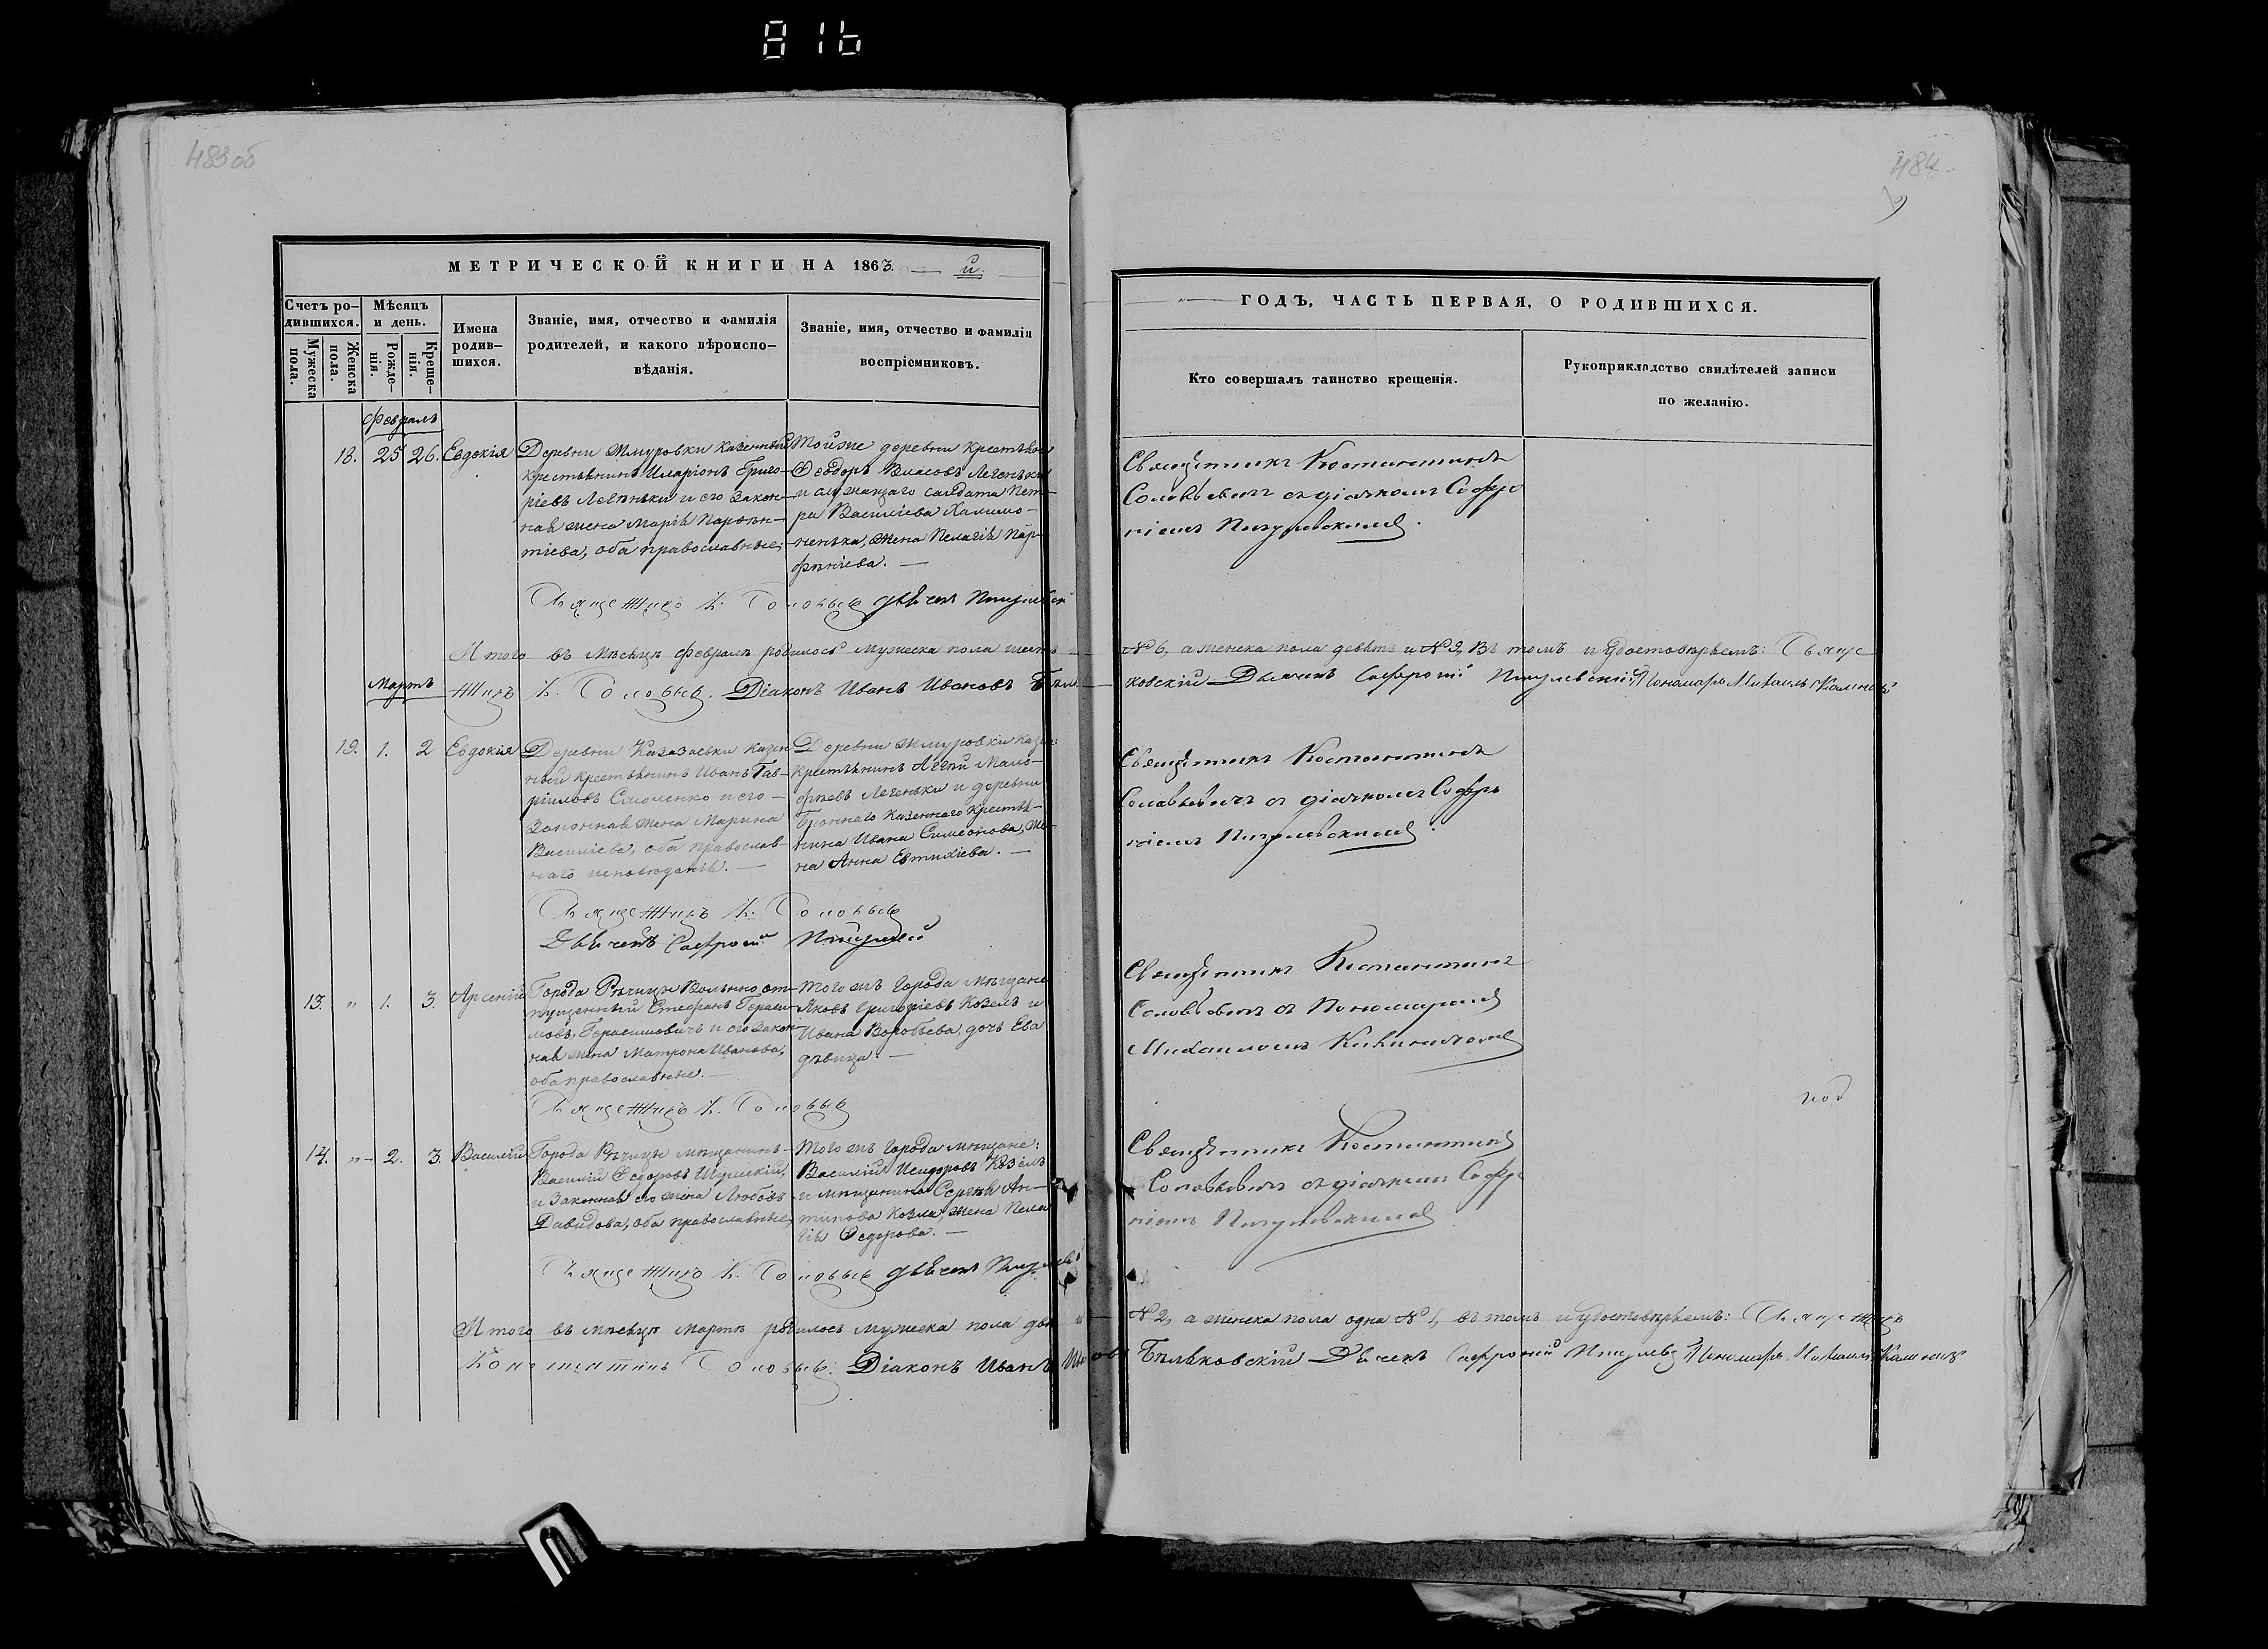 816
483об
484
МЕТРИЧЕСКОЙ КНИГИ НА 1863. — й.
Счетъ ро-
дившихся.
Мужеска
пола.
Женска
пола.
Мѣсяцъ
и день.
Рожде-
нія.
Креще-
нія.
Имена
родив-
шихся.
Званіе, имя, отчество и фамилія
родителей, и какого вѣроиспо-
вѣданія.
Званіе, имя, отчество и фамилія
воспріемниковъ.
ГОДЪ, ЧАСТЬ ПЕРВАЯ, О РОДИВШИХСЯ.
Кто совершалъ таинство крещенія.
Рукоприкладство свидѣтелей записи
по желанію.
Февраль
18. 25 26. Евдокія
Деревни Жмуровки казенный
крестьянинъ Иларіонъ Григо-
ріевъ Легенькій и его закон-
ная жена Марія Парѳен-
тіева, оба православные;
Тойже деревни крестьянинъ
Ѳеодоръ Власовъ
и служащаго салдата Пет-
ра Василіева
жена Пелагія Пар-
феніева. —
Священникъ Константинъ
Соловьевичъ съ діячкомъ Софро
ніемъ
Священникъ К. Соловьев Дьячекъ
Итого въ мѣсяцѣ февралѣ родилось мужеска пола шесть и
№ 6, а женска пола девять и № 9, въ томъ и удостовѣряемъ: Священ
никъ К. Соловьев. Діаконъ Иванъ Ивановъ Бѣль
ковскій Дьячекъ Софроній Пономарь Михаилъ
Мартъ
19. 1. 2 Евдокія
Деревни Казазаевки казен
ный крестьянинъ Иванъ Гав-
ріиловъ Смоленко и его
законная жена Марина
Василіева, оба православ-
наго исповѣданія. —
Деревни Жмуровки казен:
крестьянинъ
Легенькій и деревни
Броннаго казеннаго крестья-
нина Ивана Симеонова, же-
на Анна Евтихіева. —
Священникъ Константинъ
Соловьевичъ съ діячкомъ Софро
ніемъ
Священникъ К. Соловьев
Дьячекъ Софроній
13. " 1. 3. Арсеній
Города Рѣчицы Вольноот-
пущенный Стефанъ Гераси-
мовъ, Герасимовичъ и его закон
ная жена Матрона Иванова,
оба православные. —
Того жъ города мѣщане
Яковъ Григоріевъ Козелъ и
Ивана Воробьева, дочь Ева
дѣвица. —
Священникъ Константинъ
Соловьевичъ съ Пономаремъ
Михаиломъ
Священникъ К. Соловьев
14. " 2. 3. Василій
Города Рѣчицы мѣщанинъ
Василій Ѳедоровъ
и законная его жена Любовь
Давидова, оба православные,
Того жъ города мѣщане:
Василій Исидоровъ Козелъ
и мѣщанина Сергѣя Ан-
типова Козла, жена Пела
гія Ѳедорова. —
Священникъ Константинъ
Соловьевичъ съ діячкомъ Софро
ніемъ
Священникъ К. Соловьев Дьячекъ
Итого въ мѣсяцѣ мартѣ родилось мужеска пола два и
№ 2, а женска пола одна № 1, въ томъ и удостовѣряемъ: Священникъ
Константинъ Соловьев: Діаконъ Иванъ Ивановъ
Бѣльковскій Дьячекъ Софроній Пономарь Михаилъ